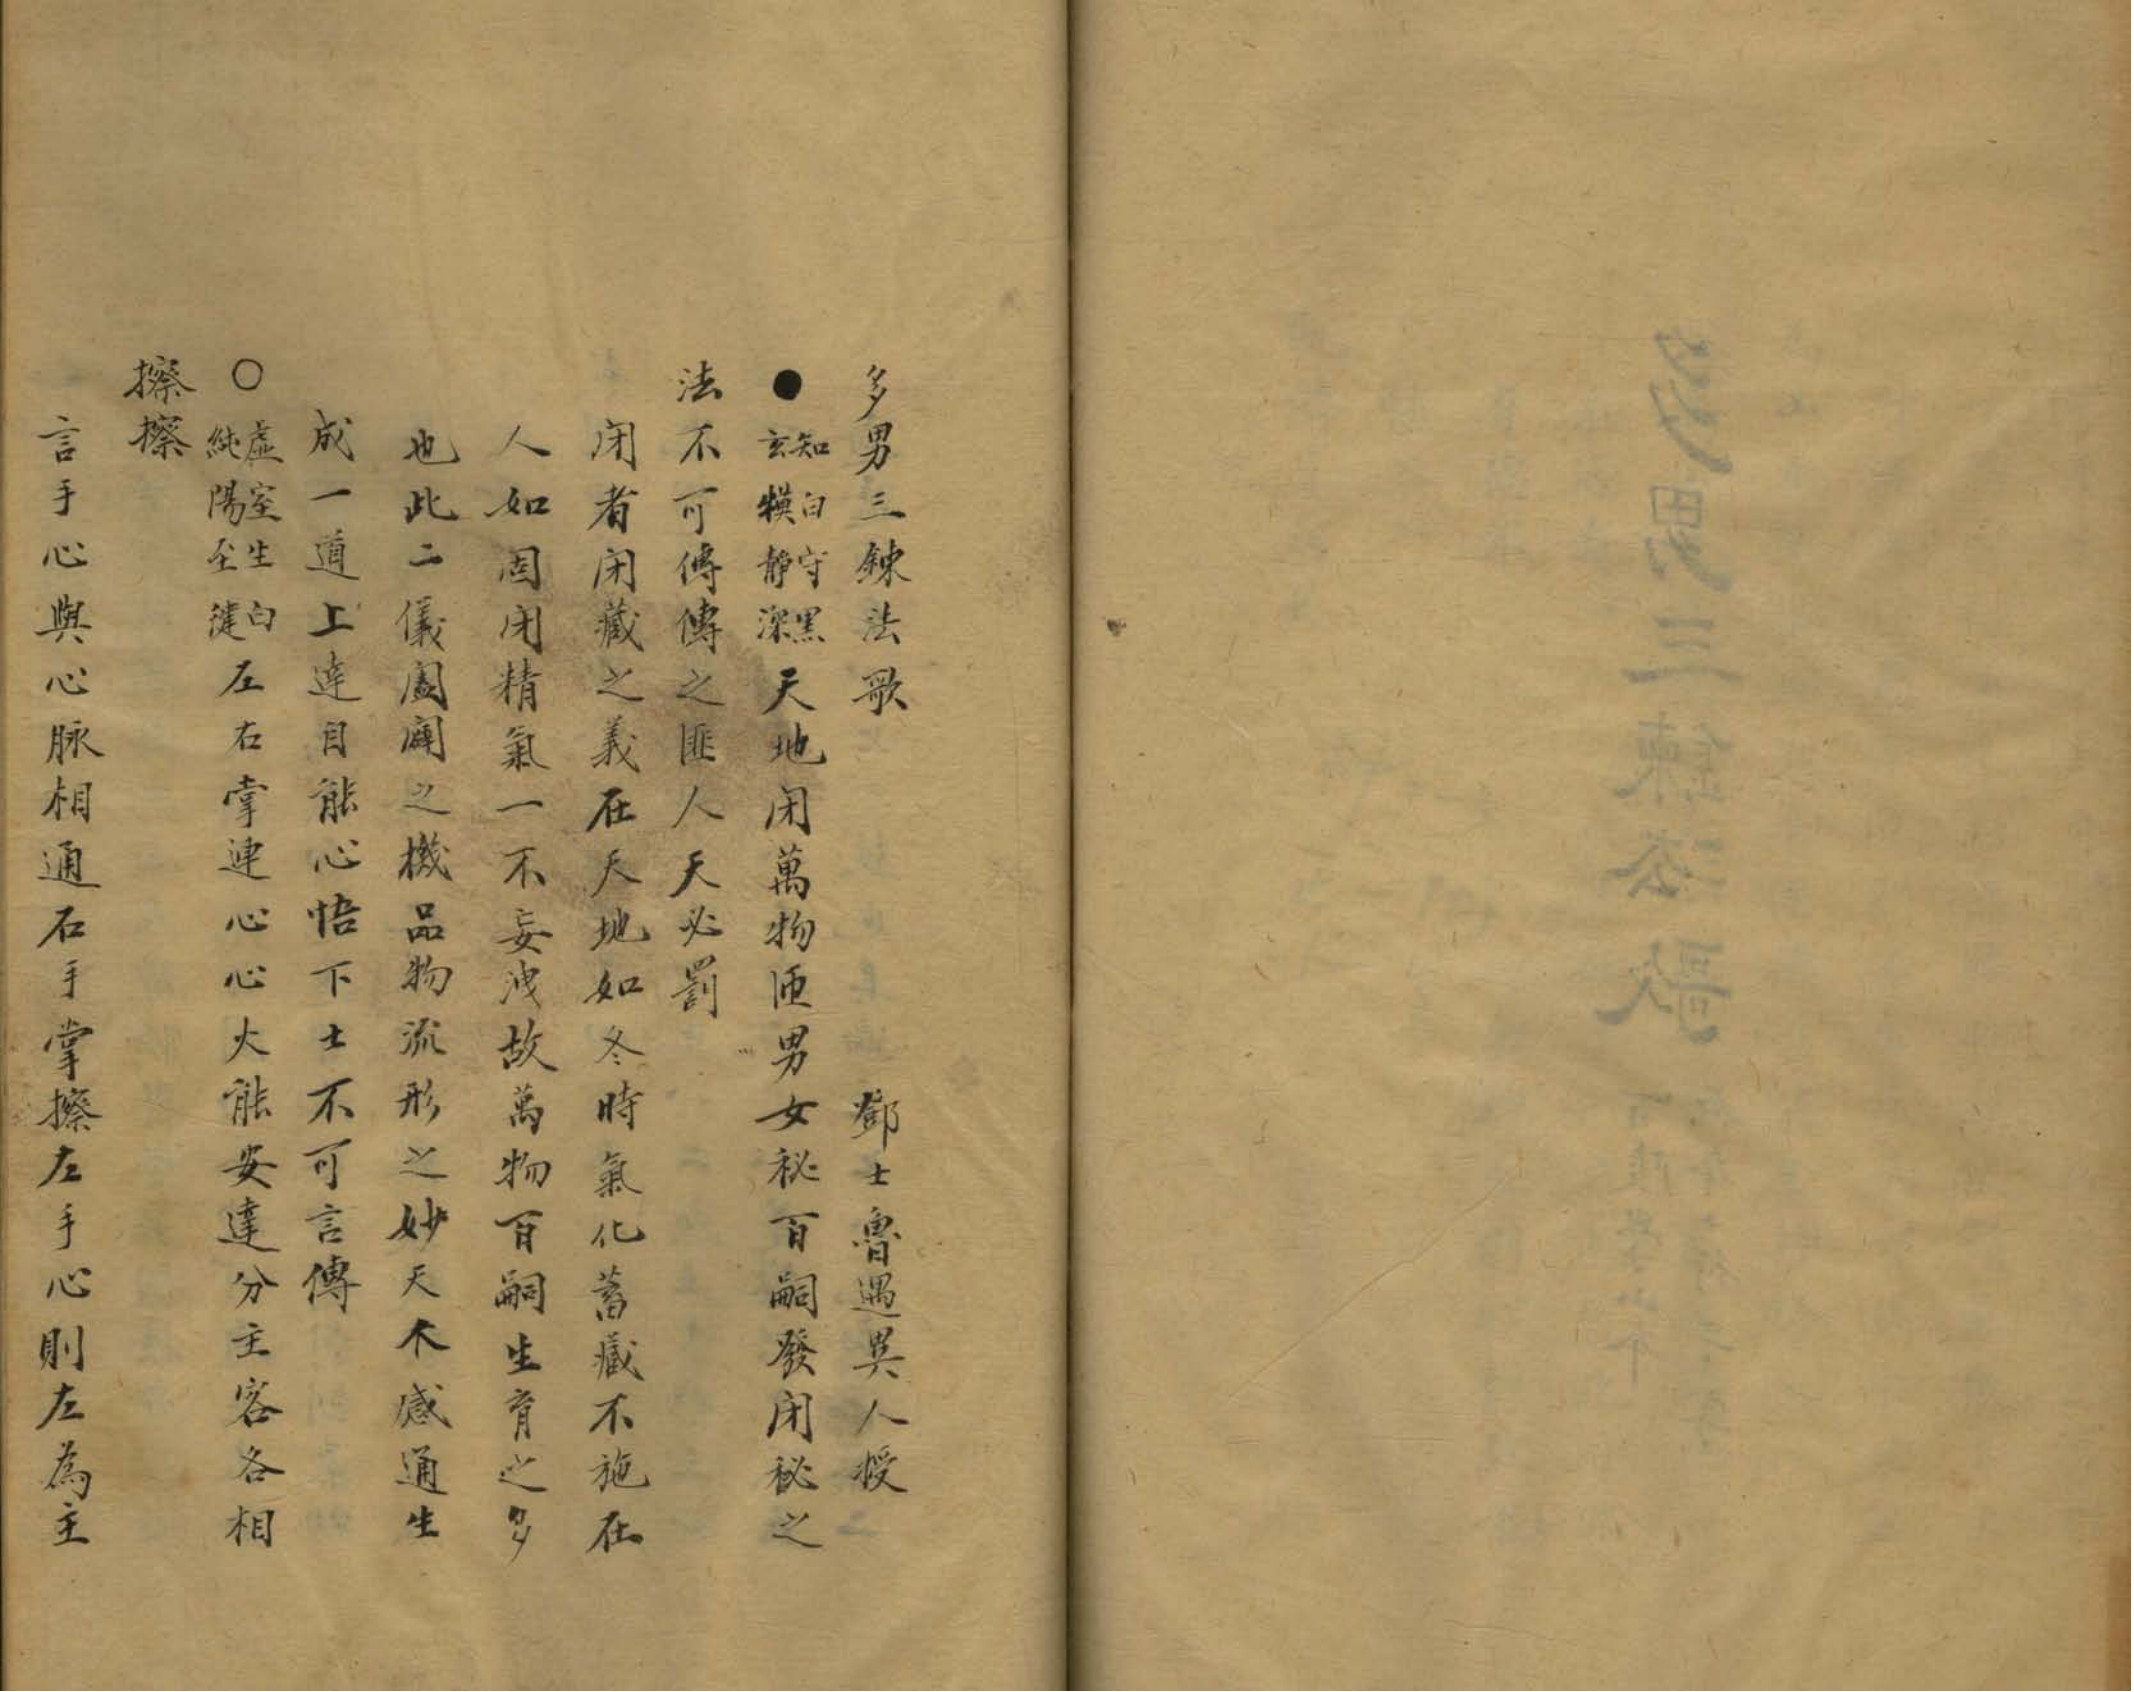 多男三錬法歌 鄧士魯遇異人授
● 知白守黑玄牝靜深 天地闭萬物匝男女秘百嗣發闭秘之
法不可傳傳之匪人天必罰
闭者闭藏之義在天地如冬時氣化蓄藏不施在
人如固闭精氣一不妄洩故萬物百嗣生育之多
也此二儀闔闢之機品物流形之妙天木感通生
成一道上達自能心悟下士不可言傳
○ 虛室生白純陽至健 左右掌連心心火能安達分主客各相
擦擦
言手心與心脉相通右手掌擦左手心則左為主